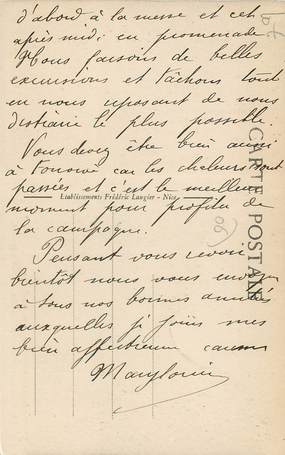 d'abord à la messe et cet
après midi en promenade
Nous faisons de belles
excursions et tâchons tout
en nous reposant de nous
distraire le plus possible.
Vous devez être bien aussi
à car les chaleurs sont
passées et c'est le meilleur
Etablissements Frédéric Laugier - Nice
moment pour profiter de
la campagne.
Pensant vous revoir
bientôt nous vous envoyons
à tous nos bonnes amitiés
auxquelles je joins mes
bien affectueux
Marylouise
CARTE POSTALE
06